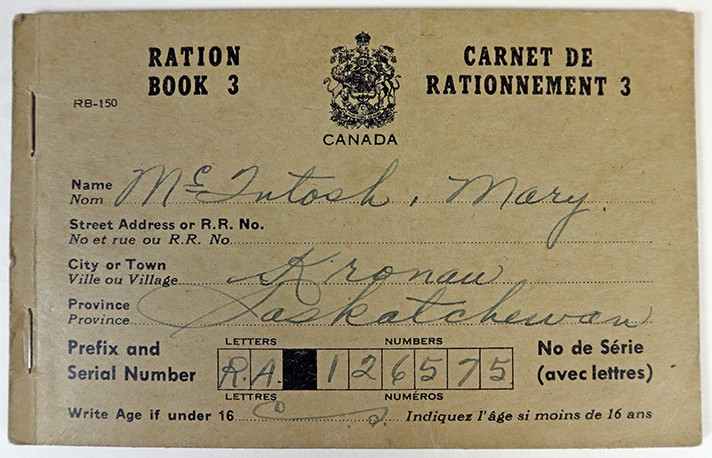 RATION BOOK 3
CARNET DE RATIONNEMENT 3
RB-150
CANADA
Name McIntosh, Mary.
Nom
Street Address or R.R. No.
No et rue ou R.R. No
City or Town Kronau
Ville ou Village
Province Saskatchewan
Province
LETTERS NUMBERS
Prefix and Serial Number R.A. 126575 No de Série (avec lettres)
LETTRES NUMÉROS
Write Age if under 16 Indiquez l'âge si moins de 16 ans